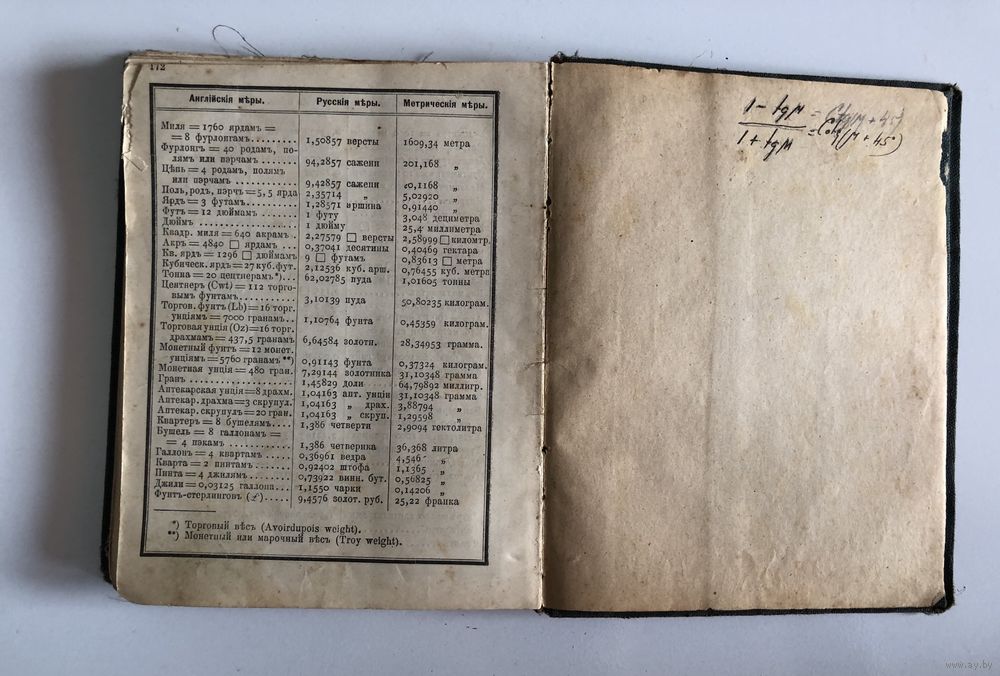 172
Англійскія мѣры. Русскія мѣры. Метрическія мѣры.
Миля = 1760 ярдамъ =
= 8 фурлонгамъ......... 1,50857 версты 1609,34 метра
Фурлонгъ = 40 родамъ, по-
лямъ или пэрчамъ........ 94,2857 сажени 201,168 „
Цѣпь = 4 родамъ, полямъ
или пэрчамъ ............ 9,42857 сажени 20,1168 „
Поль, родъ, пэрчъ = 5,5 ярда 2,35714 „ 5,02920 „
Ярдъ = 3 футамъ.......... 1,28571 аршина 0,91440 „
Футъ = 12 дюймамъ ....... 1 футу 3,048 дециметра
Дюймъ .................. 1 дюйму 25,4 миллиметра
Квадр. миля = 640 акрамъ.. 2,27579 □ версты 2,58999 □ километр.
Акръ = 4840 □ ярдамъ ... 0,37041 десятины 0,40469 гектара
Кв. ярдъ = 1296 □ дюймамъ 9 □ футамъ 0,83613 □ метра
Кубическ. ярдъ = 27 куб. фут. 2,12536 куб. арш. 0,76455 куб. метра
Тонна = 20 центнерамъ *)... 62,02785 пуда 1,01605 тонны
Центнеръ (Cwt) = 112 торго-
вымъ фунтамъ........... 3,10139 пуда 50,80235 килограм.
Торгов. фунтъ (Lb) = 16 торг.
унціямъ = 7000 гранамъ.. 1,10764 фунта 0,45359 килограм.
Торговая унція (Oz) = 16 торг.
драхмамъ = 437,5 гранамъ 6,64584 золотн. 28,34953 грамма.
Монетный фунтъ = 12 монет.
унціямъ = 5760 гранамъ **) 0,91143 фунта 0,37324 килограм.
Монетная унція = 480 гран. 7,29144 золотника 31,10348 грамма
Гранъ .................. 1,45829 доли 64,79892 миллигр.
Аптекарская унція = 8 драхм. 1,04163 апт. унціи 31,10348 грамма
Аптекар. драхма = 3 скрупул. 1,04163 „ драх. 3,88794 „
Аптекар. скрупулъ = 20 гран. 1,04163 „ скруп. 1,29598 „
Квартеръ = 8 бушелямъ.... 1,386 четверти 2,9094 гектолитра
Бушель = 8 галлонамъ =
= 4 пэкамъ ............. 1,386 четверика 36,368 литра
Галлонъ = 4 квартамъ ..... 0,36961 ведра 4,546 „
Кварта = 2 пинтамъ....... 0,92402 штофа 1,1365 „
Пинта = 4 джилямъ....... 0,73922 винн. бут. 0,56825 „
Джилли = 0,03125 галлона... 1,1550 чарки 0,14206 „
Фунтъ-стерлинговъ (£)..... 9,4576 золот. руб. 25,22 франка
*) Торговый вѣсъ (Avoirdupois weight).
**) Монетный или марочный вѣсъ (Troy weight).
1 - tgM
1 + tgM
(M + 45)
www.ay.by